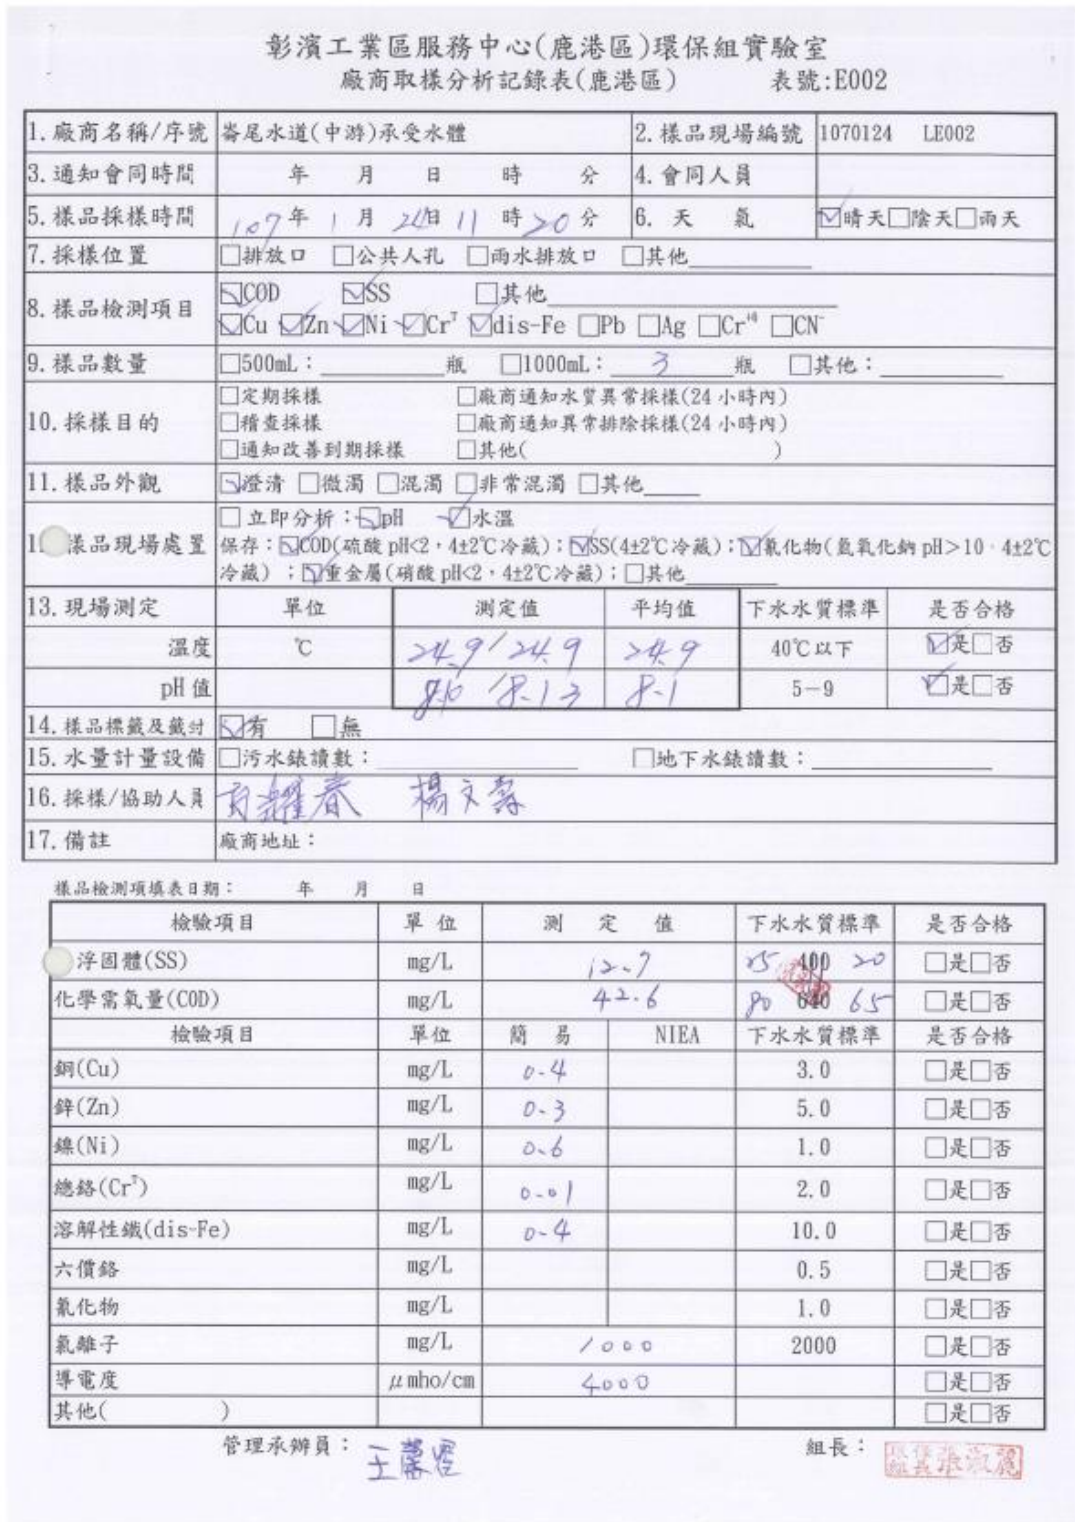 彰濱工業區服務中心(鹿港區)環保組實驗室
廠商取樣分析記錄表(鹿港區) 表號:E002
1.廠商名稱/序號 崙尾水道(中游)承受水體 2.樣品現場編號 1070124 LE002
3.通知會同時間 年 月 日 時 分 4.會同人員
5.樣品採樣時間 107年 1月 24日 11時 20分 6.天 氣 ☑晴天□陰天□雨天
7.採樣位置 □排放口 □公共人孔 □雨水排放口 □其他
8.樣品檢測項目 ☑COD ☑SS □其他
☑Cu ☑Zn ☑Ni ☑Crᵀ ☑dis-Fe □Pb □Ag □Cr⁺⁶ □CN⁻
9.樣品數量 □500mL: 瓶 □1000mL: 3 瓶 □其他:
10.採樣目的 □定期採樣 □廠商通知水質異常採樣(24小時內)
□稽查採樣 □廠商通知異常排除採樣(24小時內)
□通知改善到期採樣 □其他( )
11.樣品外觀 ☑澄清 □微濁 □混濁 □非常混濁 □其他
樣品現場處置 □立即分析:☑pH ☑水溫
保存:☑COD(硫酸pH<2,4±2℃冷藏);☑SS(4±2℃冷藏);☑氰化物(氫氧化鈉pH>10,4±2℃
冷藏);☑重金屬(硝酸pH<2,4±2℃冷藏);□其他
13.現場測定 單位 測定值 平均值 下水水質標準 是否合格
溫度 ℃ 24.9/24.9 24.9 40℃以下 ☑是□否
pH值 /8.13 8.1 5-9 ☑是□否
14.樣品標籤及籤封 ☑有 □無
15.水量計量設備 □污水錶讀數: □地下水錶讀數:
16.採樣/協助人員 耀春 楊文壽
17.備註 廠商地址:
樣品檢測項填表日期: 年 月 日
檢驗項目 單位 測 定 值 下水水質標準 是否合格
浮固體(SS) mg/L 12.7 25 400 20 □是□否
化學需氧量(COD) mg/L 42.6 80 640 65 □是□否
檢驗項目 單位 簡 易 NIEA 下水水質標準 是否合格
銅(Cu) mg/L 0.4 3.0 □是□否
鋅(Zn) mg/L 0.3 5.0 □是□否
鎳(Ni) mg/L 0.6 1.0 □是□否
總鉻(Crᵀ) mg/L 0.01 2.0 □是□否
溶解性鐵(dis-Fe) mg/L 0.4 10.0 □是□否
六價鉻 mg/L 0.5 □是□否
氰化物 mg/L 1.0 □是□否
氯離子 mg/L 1000 2000 □是□否
導電度 μmho/cm 4000 □是□否
其他( ) □是□否
管理承辦員: 王 組長: 張淑麗